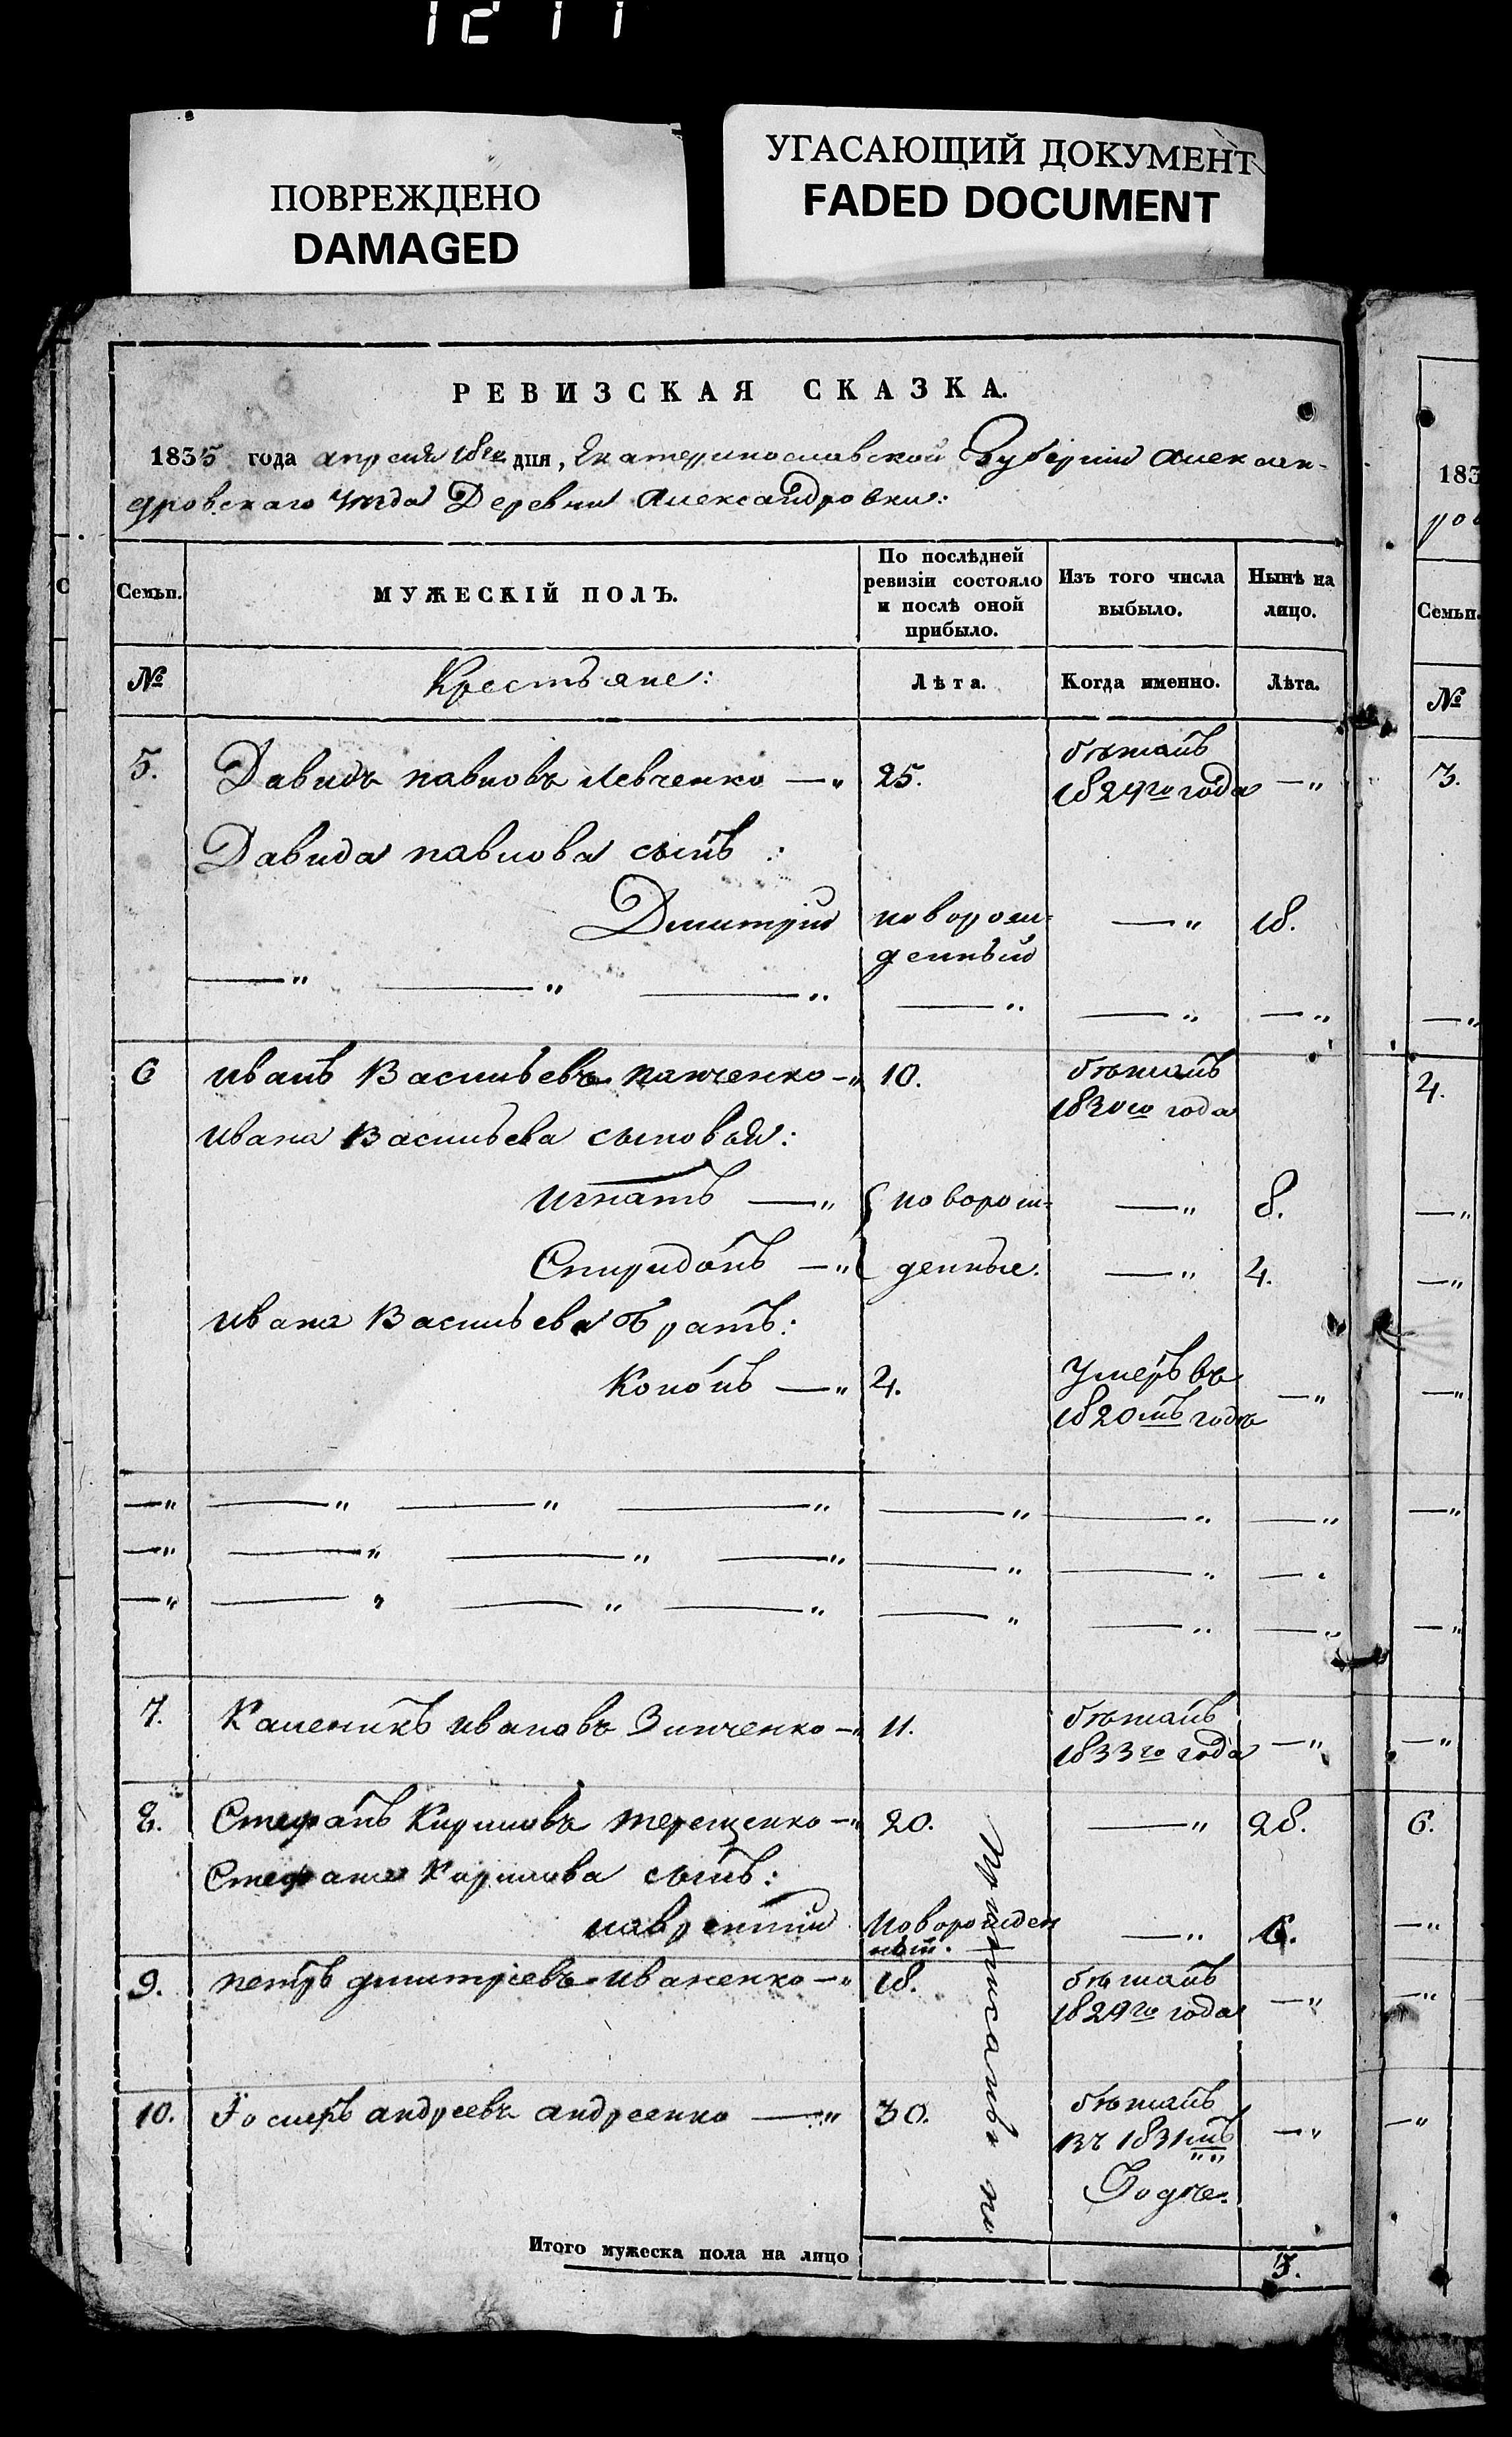 1211
ПОВРЕЖДЕНО
DAMAGED
УГАСАЮЩИЙ ДОКУМЕНТ
FADED DOCUMENT
РЕВИЗСКАЯ СКАЗКА.
1835 года апреля 18го дня, Екатеринославской Губерніи Алексан-
дровскаго уѣзда Деревни Александровки:
Семьи.
МУЖЕСКІЙ ПОЛЪ.
По послѣдней
ревизіи состояло
и послѣ оной
прибыло.
Изъ того числа
выбыло.
Нынѣ на
лицо.
№
Крестьяне:
Лѣта.
Когда именно.
Лѣта.
5. Давидъ павловъ Левченко —„ 25. бѣжалъ
1829го года —„
Давида павлова сынъ:
Дмитрій новорож- —„ 18.
денный
6 иванъ Васильевъ панченко —„ 10. бѣжалъ
1830го года
ивана Васильева сыновья:
игнатъ —„ новорож- —„ 8.
Спиридонъ —„ денные. —„ 4.
ивана Васильева братъ:
Кононъ —„ 4. умеръ въ
1820мъ годѣ —„
7. Каленикъ ивановъ Зинченко —„ 11. бѣжалъ
1833го года —„
8. Стефанъ Кириловъ терещенко —„ 20. —„ 28.
Стефана Кирилова сынъ:
лаврентій Новорожден —„ 6.
ный.
9. петръ дмитріевъ иваненко —„ 18. бѣжалъ
1829го года —„
10. Іосифъ андреевъ андреенко —„ 30. бѣжалъ
въ 1831мъ —„
Годѣ.
Итого мужеска пола на лицо 5.
183
ров
Семьи.
№
3.
4.
6.